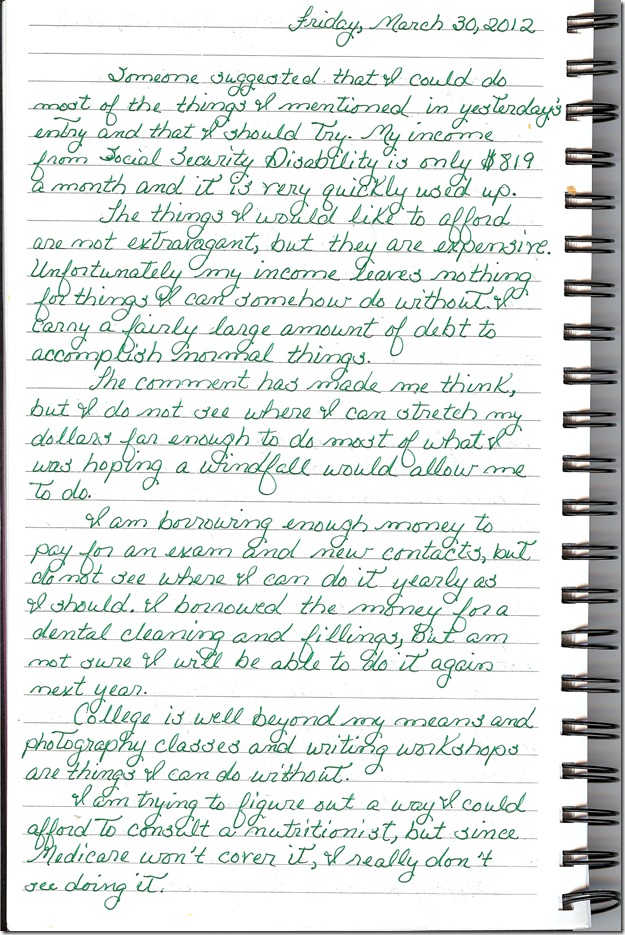 Friday, March 30, 2012
Someone suggested that I could do
most of the things I mentioned in yesterday's
entry and that I should try. My income
from Social Security Disability is only $819
a month and it is very quickly used up.
The things I would like to afford
are not extravagant, but they are expensive.
Unfortunately my income leaves nothing
for things I can somehow do without. I
carry a fairly large amount of debt to
accomplish normal things.
The comment has made me think,
but I do not see where I can stretch my
dollars far enough to do most of what I
was hoping a windfall would allow me
to do.
I am borrowing enough money to
pay for an exam and new contacts, but
do not see where I can do it yearly as
I should. I borrowed the money for a
dental cleaning and fillings, but am
not sure I will be able to do it again
next year.
College is well beyond my means and
photography classes and writing workshops
are things I can do without.
I am trying to figure out a way I could
afford to consult a nutritionist, but since
Medicare won't cover it, I really don't
see doing it.